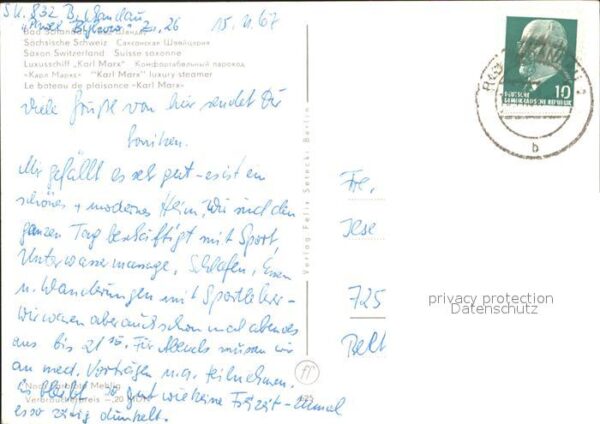 SK. 832 B. Schandau
15.11.67
Bad Schandau
Sächsische Schweiz Саксонская Швейцария
Saxon Switzerland Suisse saxonne
Luxusschiff „Karl Marx" Комфортабельный пароход
«Карл Маркс» "Karl Marx" luxury steamer
Le bateau de plaisance «Karl Marx»
viele Grüße von hier sendet Dir
Mir gefällt es sehr gut - es ist ein
schönes + modernes Heim. Wir sind den
ganzen Tag beschäftigt mit Sport,
Unterwassermassage, Schlafen, Essen
u. Wanderungen mit Sportlehrer -
wir waren aber auch schon mal abends
aus bis 21 15. Für Abends müssen wir
an med. Vorträgen u.a. teilnehmen.
Es bleibt so gut wie keine Freizeit - zumal
es so zeitig dunkelt.
Verbraucherpreis -,20 MDN
Verlag Felix Setecki Berlin
10
DEUTSCHE
DEMOKRATISCHE REPUBLIK
b
Fr.
Ilse
725
privacy protection
Datenschutz